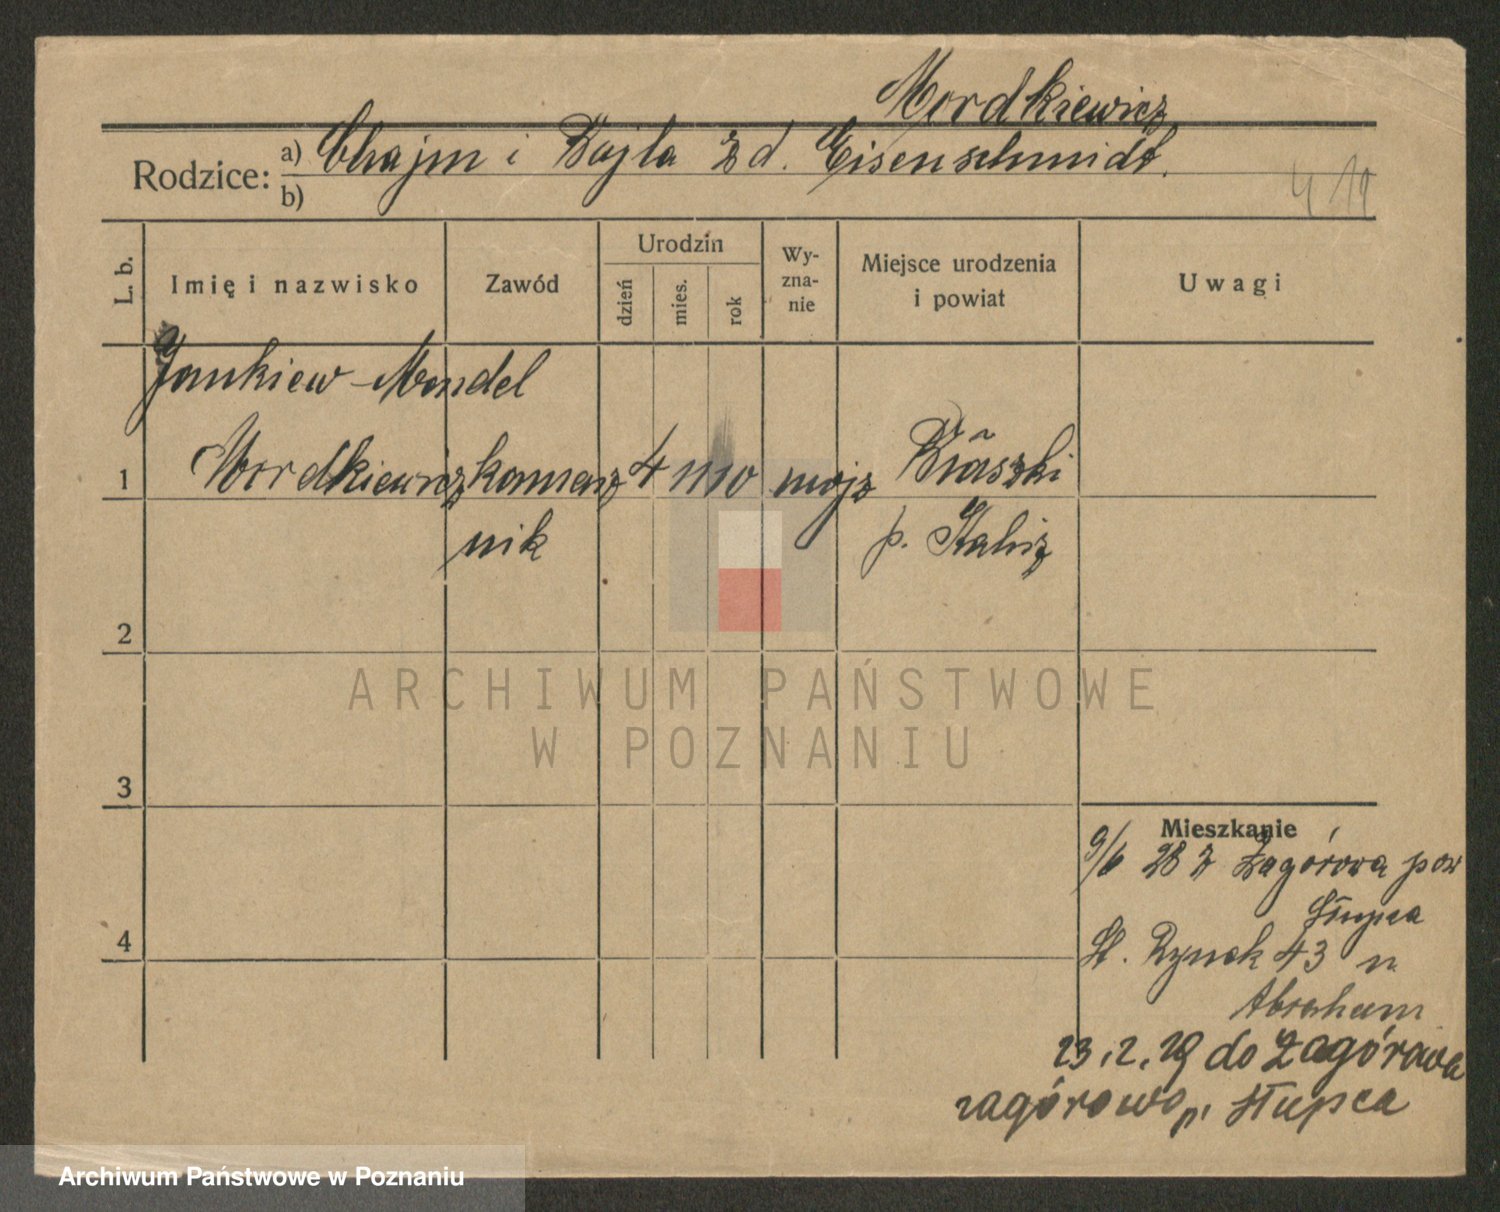 Mordkiewicz
Rodzice: a) Chajm i Bajla z d. Eisenschmidt.
b)
4 19
L. b. Imię i nazwisko Zawód Urodzin dzień mies. rok Wy-zna-nie Miejsce urodzenia i powiat Uwagi
Jankiew-Mendel
1 Mordkiewicz kamasz 4 mojż Błaszki
nik p. Kalisz
2
ARCHIWUM PAŃSTWOWE
W POZNANIU
3
Mieszkanie
9/6 28 z Zagórowa pow
Słupca
4 St. Rynek 43 u
Abraham
23.2.29 do Zagórowa
zagórowo p. Słupca
Archiwum Państwowe w Poznaniu